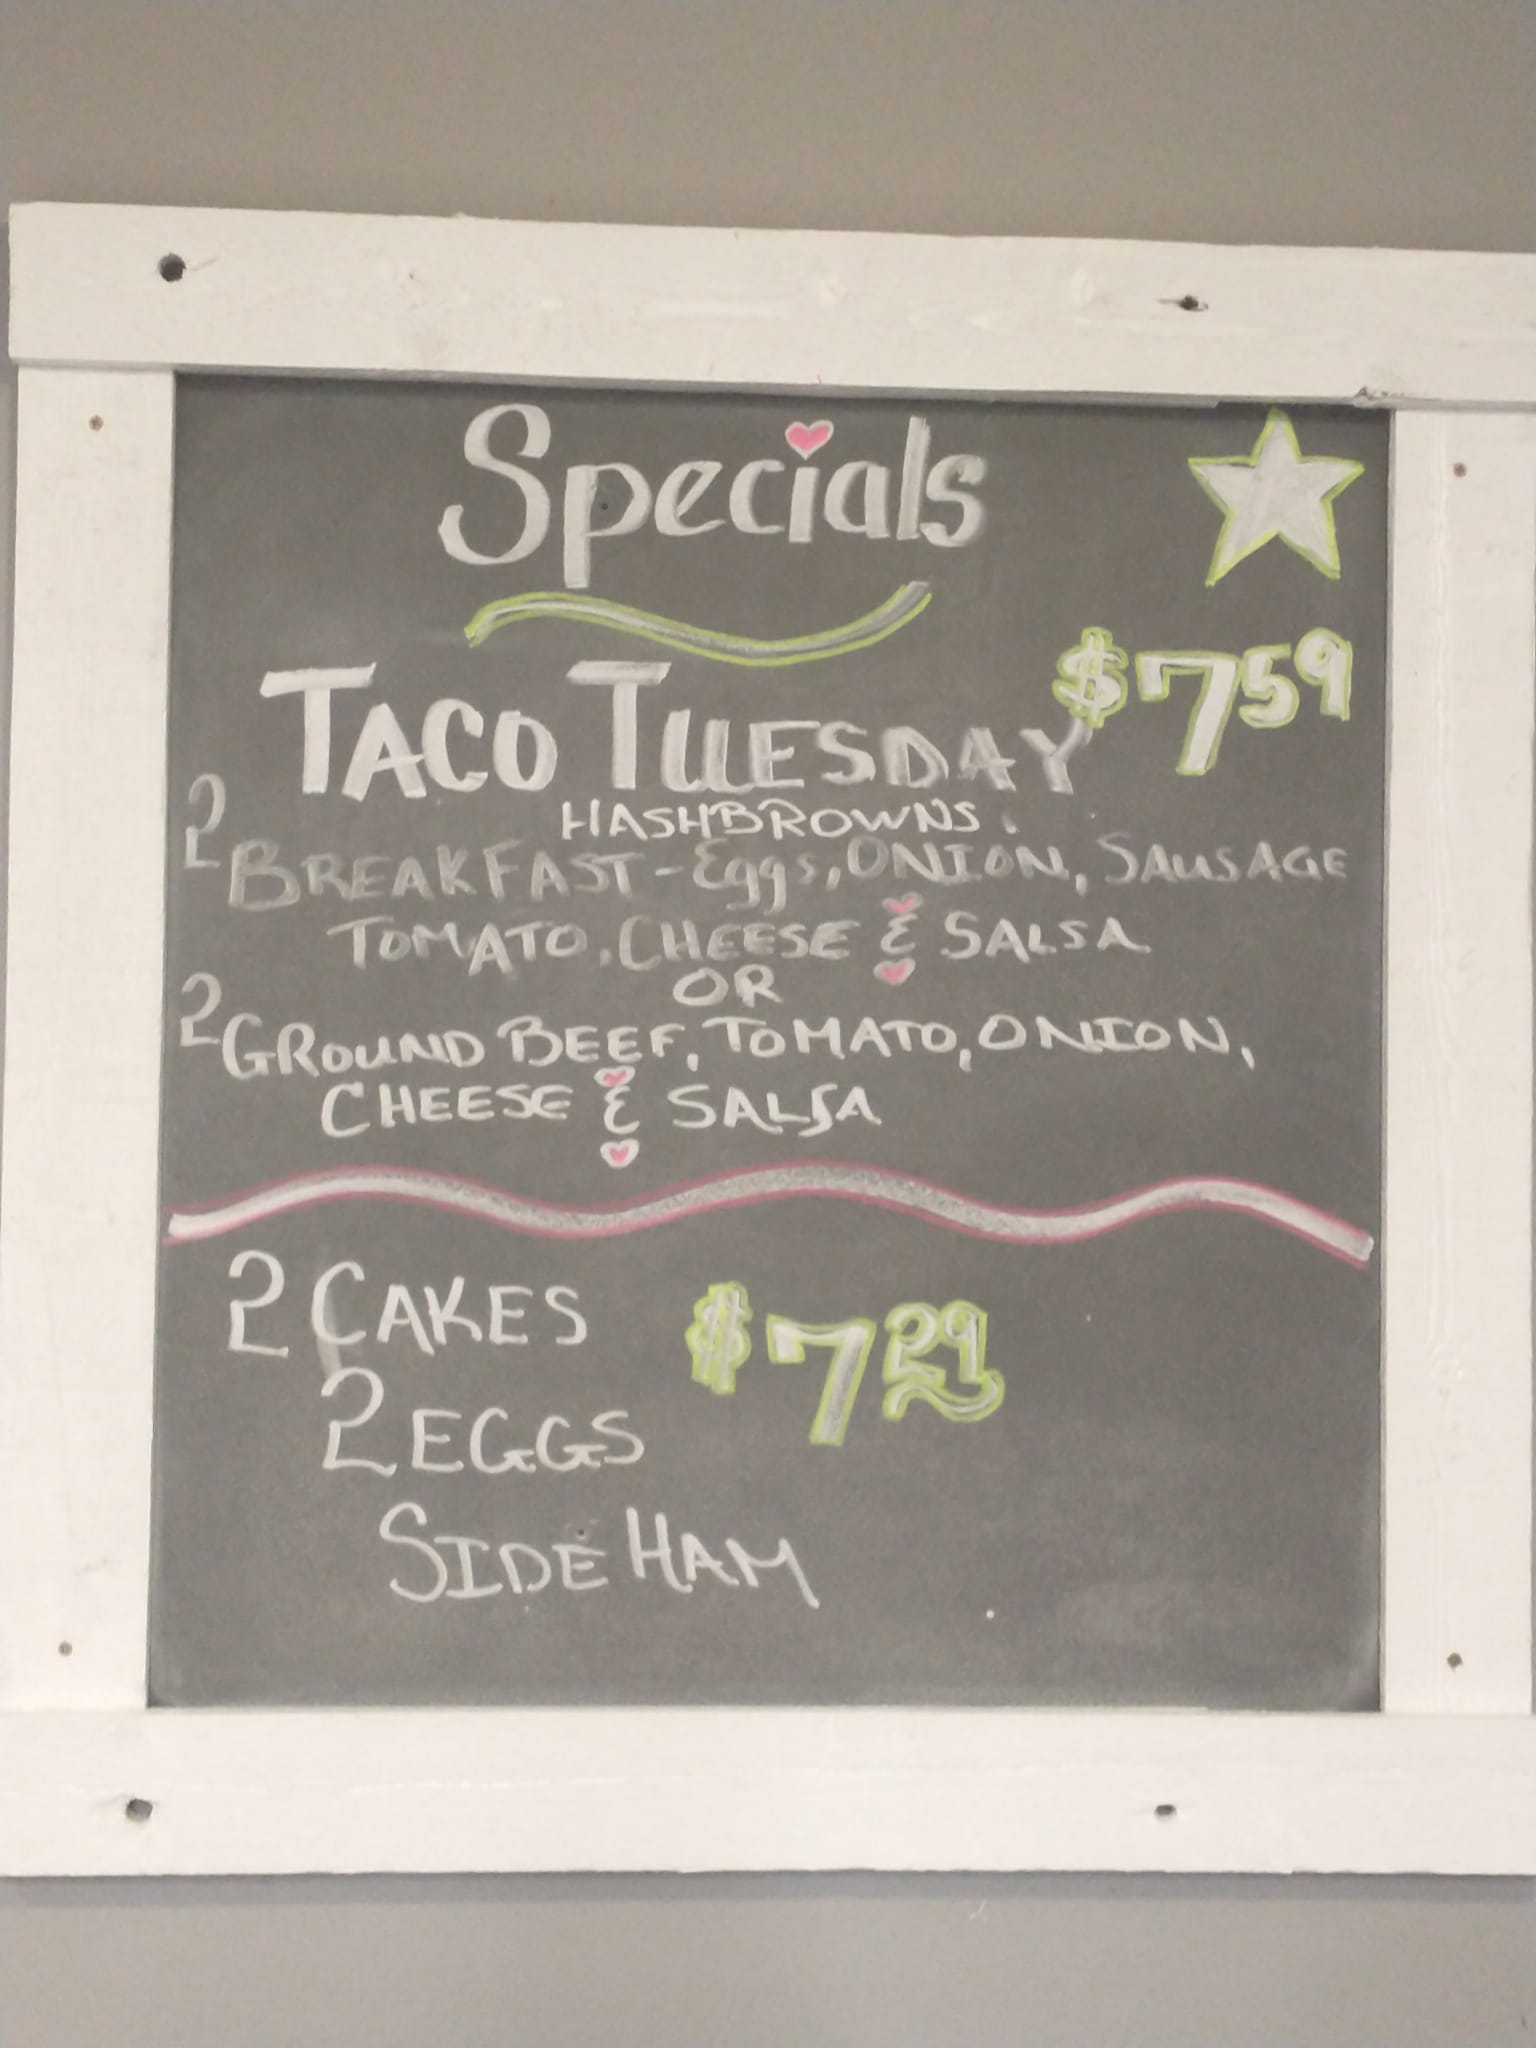 Specials
TACO TUESDAY $759
HASHBROWNS.
2 BREAKFAST - Eggs, ONION, SAUSAGE
TOMATO, CHEESE & SALSA
OR
2 GROUND BEEF, TOMATO, ONION,
CHEESE & SALSA
2 CAKES $7 29
2 EGGS
SIDE HAM